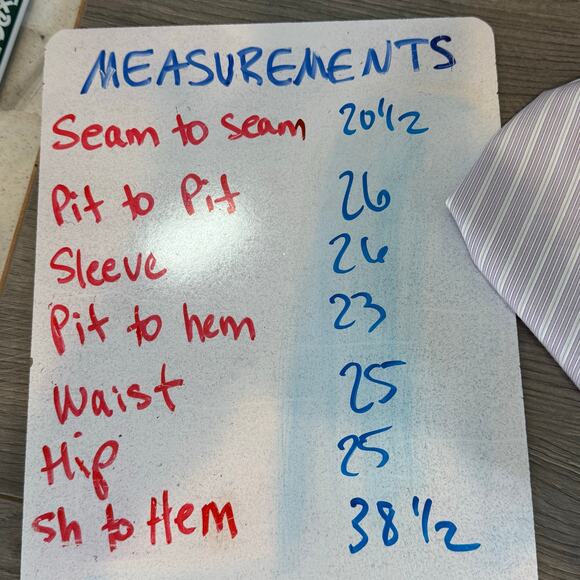 MEASUREMENTS
Seam to seam 20 1/2
Pit to Pit 26
Sleeve 26
Pit to hem 23
Waist 25
Hip 25
Sh to Hem 38 1/2